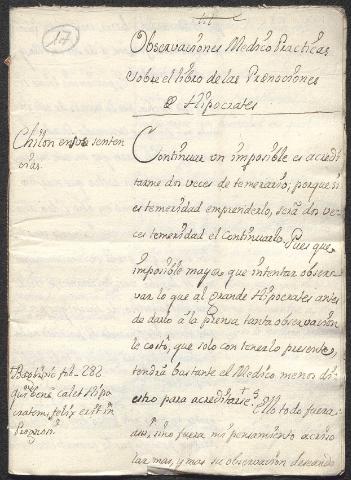 17
Observaciones Medico Practicas
sobre el libro de las Prenociones
de Hipocrates
Chilon en sus senten
cias.
Continuar un imposible es acredi
tarme dos veces de temerario; porque si
es temeridad emprenderlo, será dos ve
ces temeridad el continuarlo. Pues que
imposible mayor que intentar obser
var lo que al grande Hipocrates antes
de darlo á la prensa tanta observacion
le costó, que solo con tenerlo presente
tendrá bastante el Medico menos di
estro para acreditarse. Ello todo fuera
sino fuera mi pensamiento acriso
lar mas, y mas su observacion deseando
fol. 282
qui bene calet Hipo
cratem, felix erit in